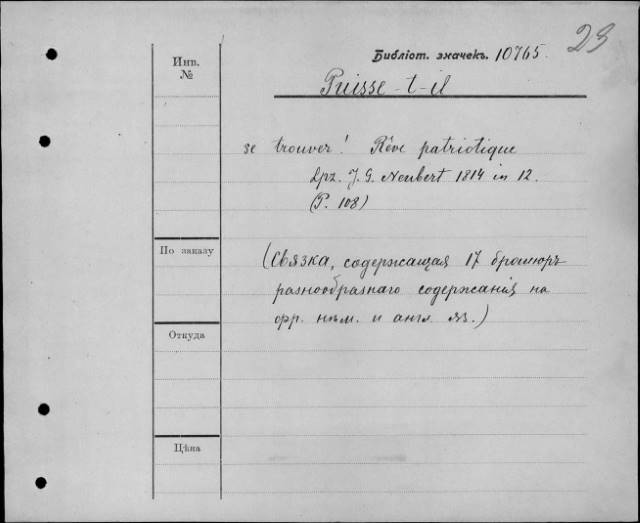 29
Библіот. значекъ. 10765.
Инв.
№
Puisse-t-il
se trouver! Rêve patriotique
Lpz. J. G. Neubert 1814 in 12.
(P. 108)
По заказу
(Связка, содержащая 17 брошюръ
разнообразнаго содержанія на
фр. нѣм. и англ. яз.)
Откуда
Цѣна